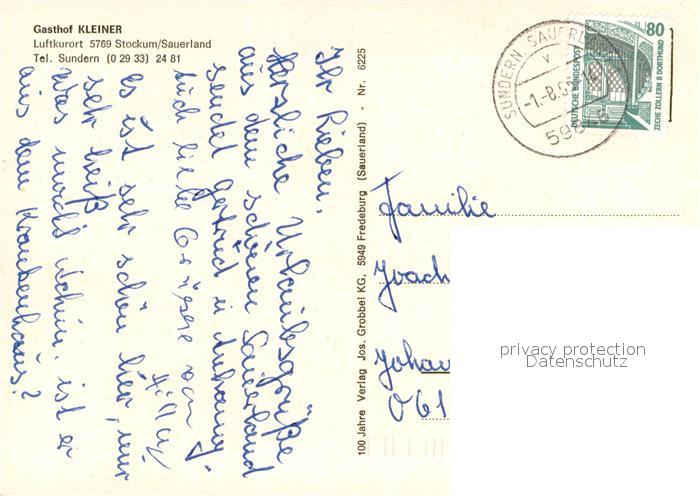 Gasthof KLEINER
Luftkurort 5769 Stockum/Sauerland
Tel. Sundern (0 29 33) 24 81
Ihr Lieben,
Herzliche Urlaubsgrüße
aus dem schönen Sauerland
sendet Gertrud u. Anhang.
liebe Grüsse von
es ist sehr schön hier, nur
sehr heiß
Was macht Achim, ist er
aus dem Krankenhaus?
100 Jahre Verlag Jos. Grobbel KG. 5949 Fredeburg (Sauerland) - Nr. 6225
SUNDERN, SAUERL
v
-1.-8.
80
DEUTSCHE BUNDESPOST
ZECHE ZOLLERN II DORTMUND
Familie
Joach
Johan
061
privacy protection
Datenschutz